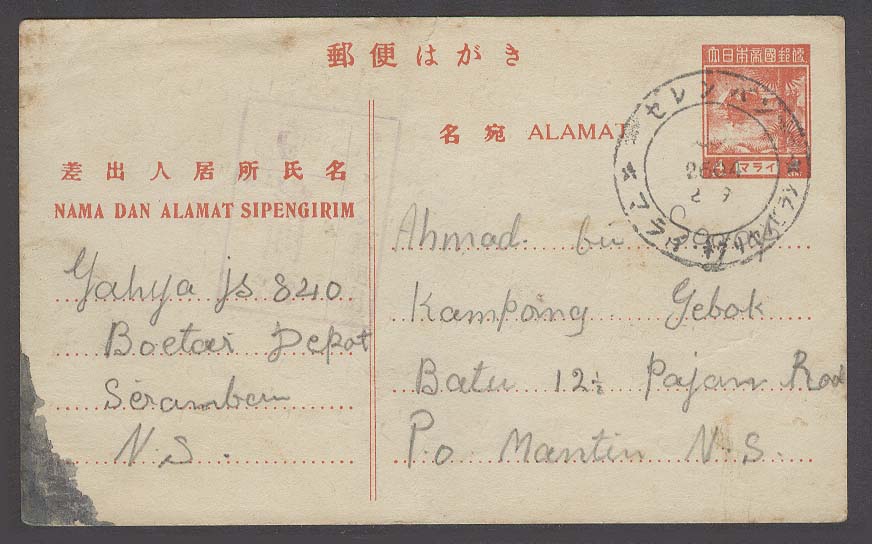 郵便はがき
大日本帝國郵便
マライ
セレンバン
2604
2 9
名宛 ALAMAT
差出人居所氏名
NAMA DAN ALAMAT SIPENGIRIM
Yahya js 840
Boetai Depot
Seramban
N.S.
Ahmad. bii
Kampong Gebok
Batu 12½ Pajam Road
P.o Mantin N.S.